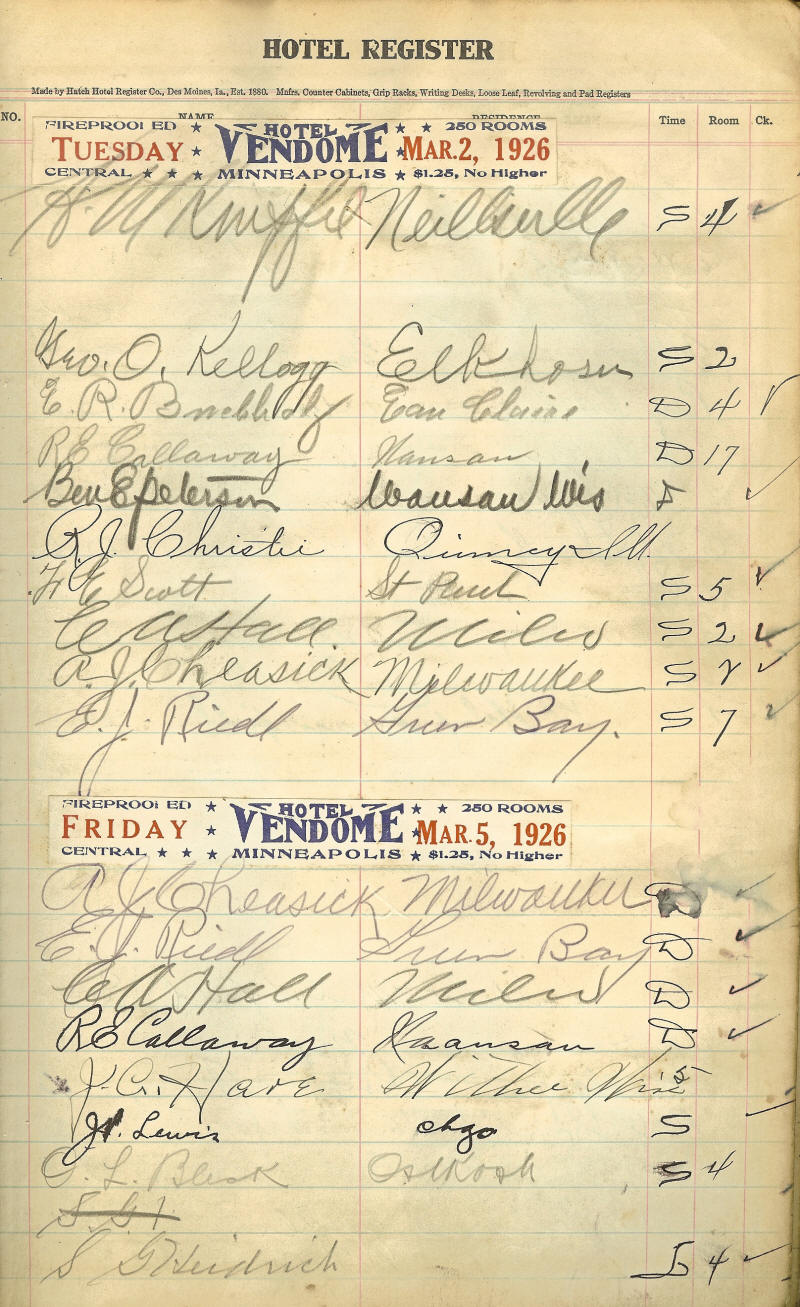 HOTEL REGISTER
Made by Hatch Hotel Register Co., Des Moines, Ia., Est. 1880. Mnfrs. Counter Cabinets, Grip Racks, Writing Desks, Loose Leaf, Revolving and Pad Registers
NO. NAME RESIDENCE Time Room Ck.
FIREPROOFED ★ HOTEL ★ ★ 250 ROOMS
TUESDAY ★ VENDOME ★ MAR. 2, 1926
CENTRAL ★ ★ ★ MINNEAPOLIS ★ $1.25, No Higher
Neillsville S 4 ✓
Geo. O. Kellogg Elkhorn S 2
E. R. Eau Claire D 4 ✓
R E Callaway D 17
Ben E Peterson Wausau Wis ✓
R. J. Christie Quincy Ill.
F E Scott St Paul S 5 ✓
C A Hall Milw S 2 ✓
A. J. Cheasick Milwaukee S ✓
E. J. Riedl Green Bay. S 7 ✓
FIREPROOFED ★ HOTEL ★ ★ 250 ROOMS
FRIDAY ★ VENDOME ★ MAR. 5, 1926
CENTRAL ★ ★ ★ MINNEAPOLIS ★ $1.25, No Higher
A J Cheasick Milwaukee D ✓
E. J. Riedl Green Bay D ✓
C A Hall Milw D ✓
R E Callaway D ✓
J. C. Hare Withee Wis 5
Lewis chgo S ✓
G. L. Oshkosh S 4
S. G.
S G Heidrich 4 ✓